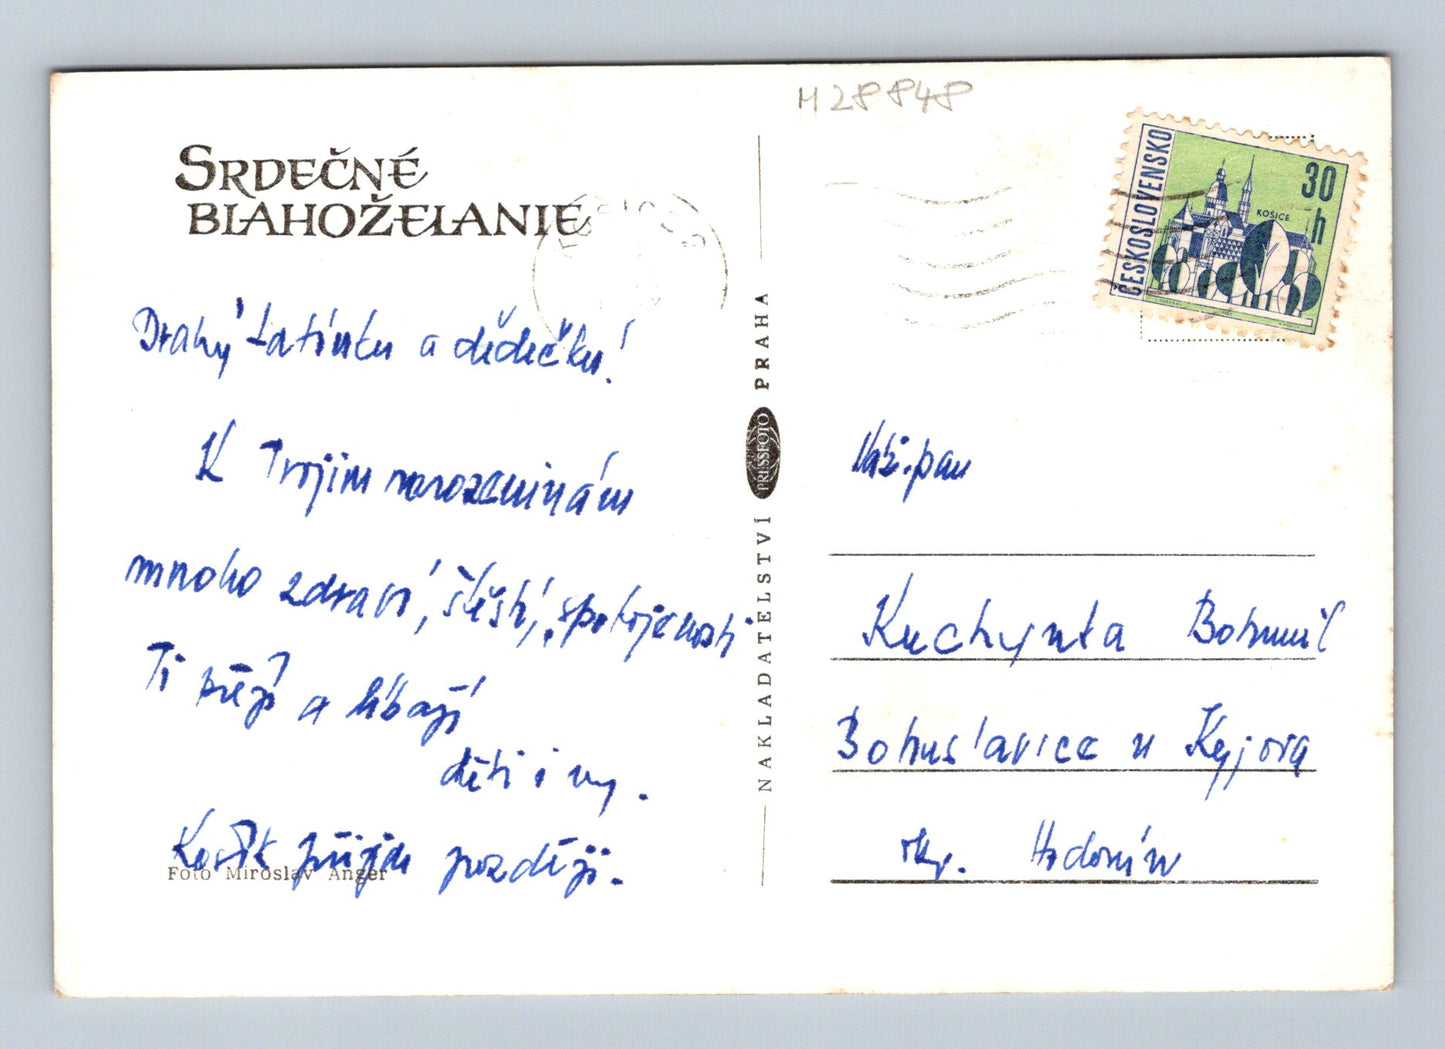 M28848
SRDEČNÉ
BLAHOŽELANIE
Drahý tatínku a dědečku!
K Tvojim narozeninám
mnoho zdraví, štěstí, spokojenosti
Ti přejí a líbají
děti i my.
přijdu později.
Foto Miroslav Anger
NAKLADATELSTVÍ PRESSFOTO PRAHA
ČESKOSLOVENSKO
30 h
KOŠICE
Váž. pan
Kuchyňka Bohumil
Bohuslavice u Kyjova
okr. Hodonín